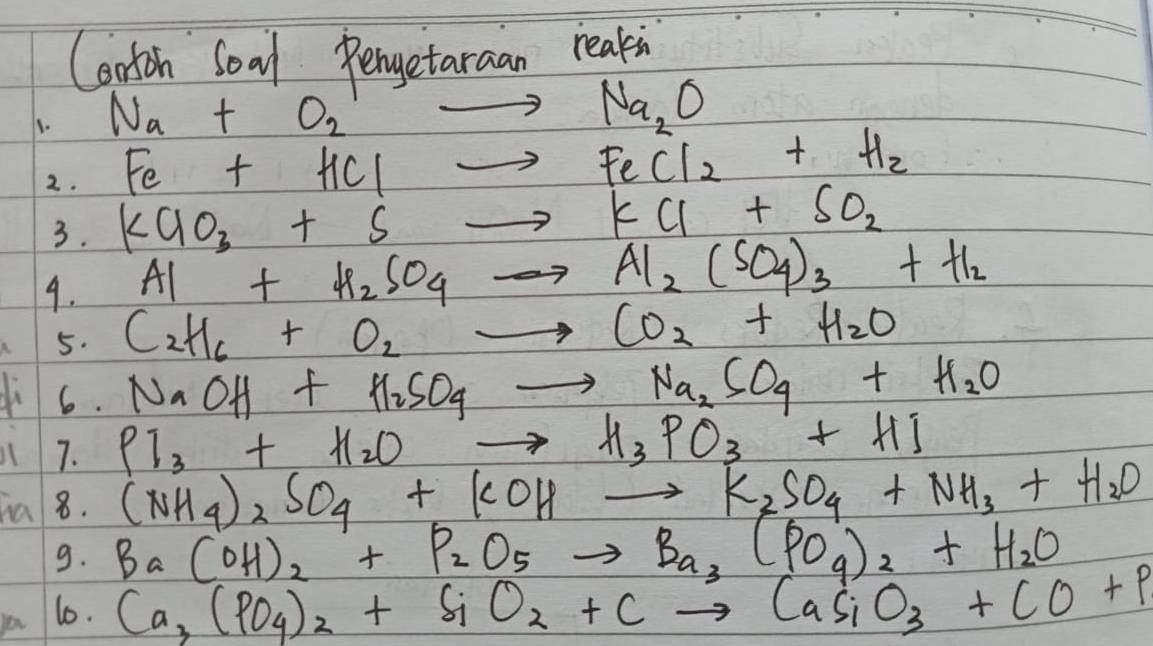 Contoh Soal Penyetaraan reaksi
1. Na + O2 → Na2O
2. Fe + HCl → FeCl2 + H2
3. KClO3 + S → KCl + SO2
4. Al + H2SO4 → Al2(SO4)3 + H2
5. C2H6 + O2 → CO2 + H2O
6. NaOH + H2SO4 → Na2SO4 + H2O
7. PI3 + H2O → H3PO3 + HI
8. (NH4)2SO4 + KOH → K2SO4 + NH3 + H2O
9. Ba(OH)2 + P2O5 → Ba3(PO4)2 + H2O
10. Ca3(PO4)2 + SiO2 + C → CaSiO3 + CO + P